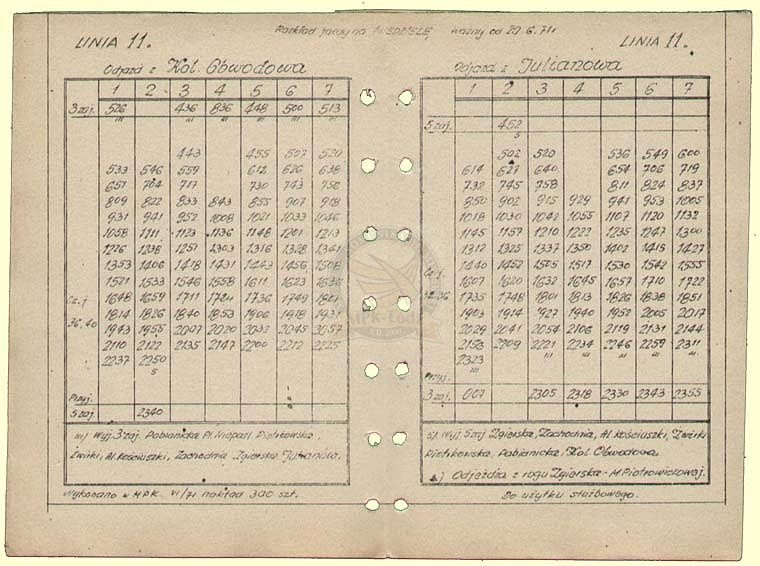 Rozkład jazdy na NIEDZIELE ważny od 20.6.71r
LINIA 11.
Odjazd z Kol. Obwodowa
1 2 3 4 5 6 7
3 zaj. 526 436 836 448 500 513
443 455 507 520
533 546 559 612 626 638
651 704 717 730 743 756
809 822 833 843 855 907 918
931 941 952 1008 1021 1033 1046
1058 1111 1123 1136 1148 1201 1213
1226 1238 1251 1303 1316 1328 1341
1353 1406 1418 1431 1443 1456 1508
1521 1533 1546 1558 1611 1623 1636
1648 1659 1711 1724 1736 1749 1801
Cz. j. 1814 1826 1840 1853 1906 1918 1931
36,40 1943 1955 2007 2020 2032 2045 2057
2110 2122 2135 2147 2200 2212 2225
2237 2250
s
Przyj.
5 zaj. 2340
Wyj. 3 zaj. Pabianicka Pl. Niepodl. Piotrkowska
Żwirki, Al. Kościuszki, Zachodnia Zgierska Julianów.
Wykonano w MPK VI/71 nakład 300 szt.
LINIA 11.
Odjazd z Julianowa
1 2 3 4 5 6 7
5 zaj. 452
502 520 536 549 600
614 627 640 654 706 719
732 745 758 811 824 837
850 902 915 929 941 953 1005
1018 1030 1042 1055 1107 1120 1132
1145 1157 1210 1222 1235 1247 1300
1312 1325 1337 1350 1402 1415 1427
1440 1452 1505 1517 1530 1542 1555
1607 1620 1632 1645 1657 1710 1722
1735 1748 1801 1813 1826 1838 1851
1903 1914 1927 1940 1952 2005 2017
2029 2041 2054 2106 2119 2131 2144
2156 2209 2221 2234 2246 2259 2311
2323
Przyj.
3 zaj. 007 2305 2318 2330 2343 2355
s/ Wyj. 5 zaj Zgierska, Zachodnia, Al. Kościuszki, Żwirki
Piotrkowska, Pabianicka, Kol. Obwodowa.
Odjeżdża z rogu Zgierska - M. Piotrowiczowej.
Do użytku służbowego.
MPK-Łódź